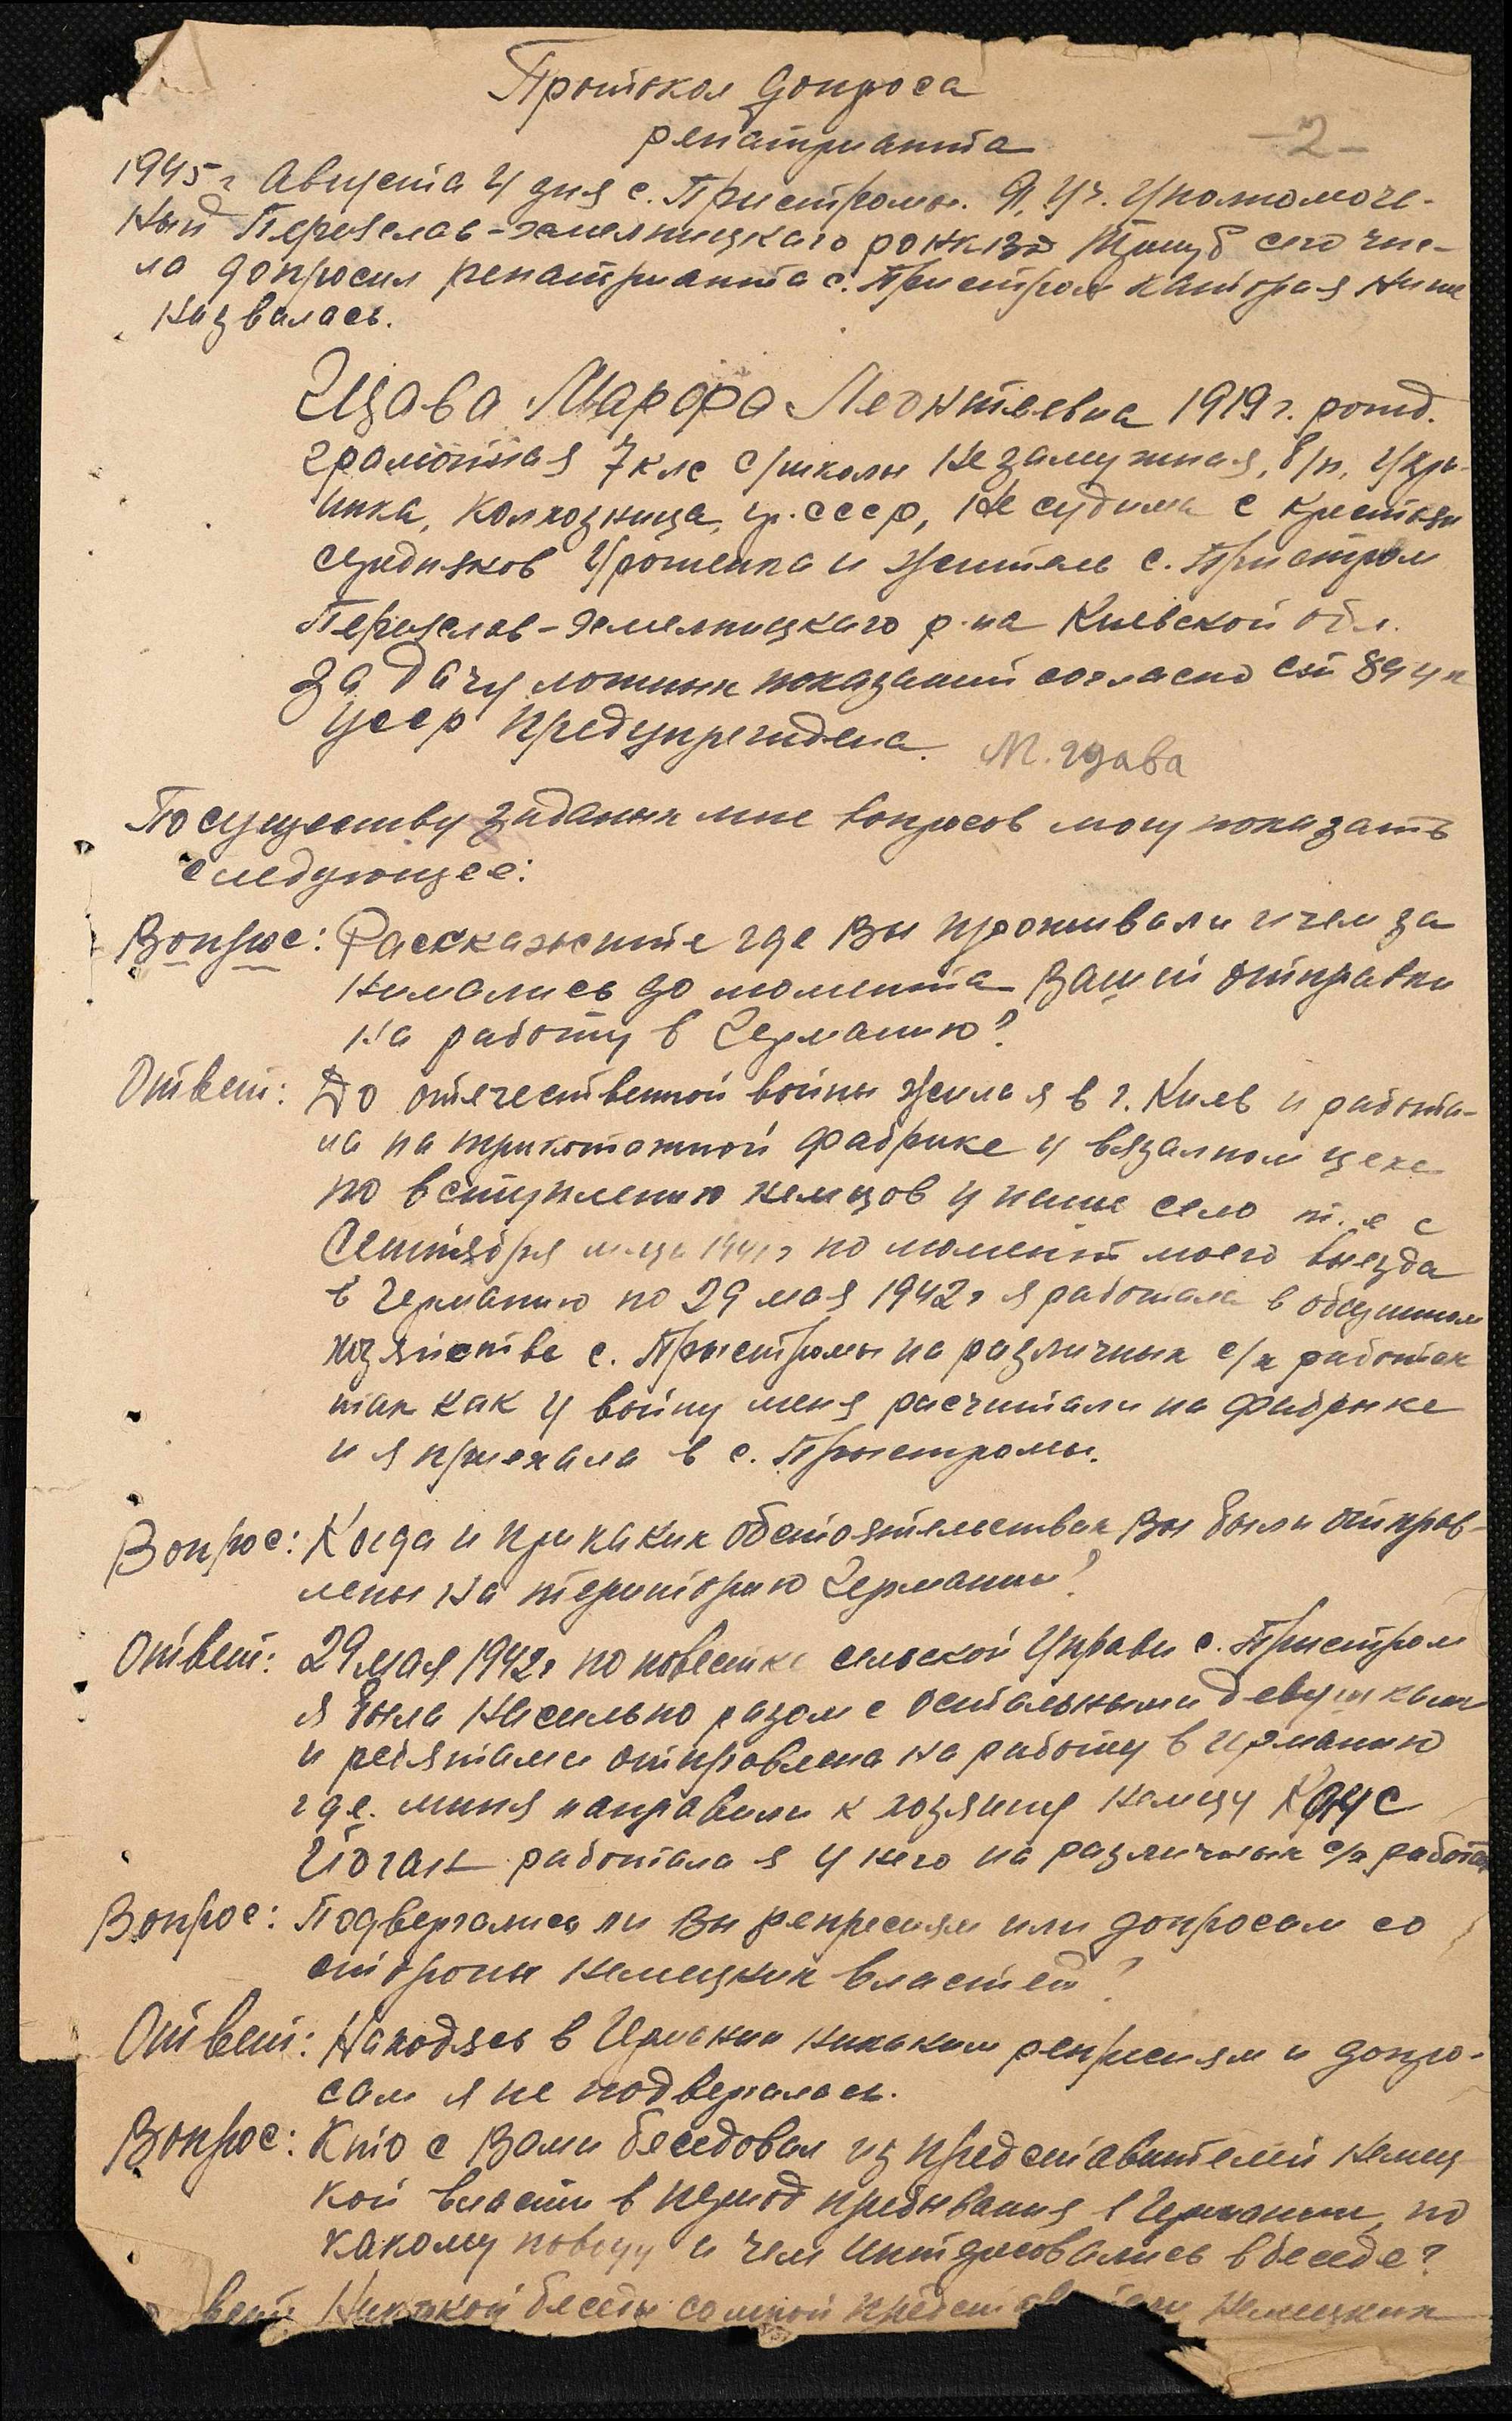 Протокол допроса
репатрианта
-2-
1945 г Августа 4 дня с. Пристромы. Я, Уч. Уполномоче-
ный Переяслав-хмельницкого РО НКГБ сего чис-
ла допросил репатрианта с. Пристром каторая ниже
назвалась.
Гузава Марфа Леонтьевна 1919 г. рожд.
грамотная 7 клс с/школы незамужняя, б/п, Укра-
инка, колхозница, гр. СССР, не судима с крестян
середняков Уроженка и житель с. Пристром
Переяслав-Хмельницкаго р-на Киевской обл.
За дачу ложных показаний согласно ст 89 УК
УССР предупреждена. М. Гузава
По существу заданых мне вопросов могу показать
следующее:
Вопрос: Расскажите где Вы проживали и чем за
нимались до момента Вашей отправки
на работу в Германию?
Ответ: До отечественной войны жила я в г. Киев и работа-
ла на трикотажной фабрике у вязалном цехе
по вступлению немцов у наше село т.е с
Сентября м-ца 1941 г по момент моего выезда
в Германию по 29 мая 1942 г я работала в общинном
хозяйстве с. Прыстромы на различных с/х работах
так как у войну меня расчитали на фабрыке
и я приехала в с. Прыстромы.
Вопрос: Когда и при каких обстоятельствах Вы были отправ-
лены на територию Германии?
Ответ: 29 мая 1942 г по повестке сельской Управы с. Пристром
я была насильно разом с остальными девушками
и ребятами отправлена на работу в Германию
где. миня направили к хозяину немцу Краус
Йоган работала я у него на различных с/х работах
Вопрос: Подвергались ли Вы репресиям или допросам со
стороны немецких властей?
Ответ: Находясь в Германии никаким репресиям и допро-
сам я не подвергалась.
Вопрос: Кто с Вами беседовал из представителей немец
кой власти в период пребывания в Германии, по
какому поводу и чем интересовались в беседе?
вет: Никакой беседы со мной немецких